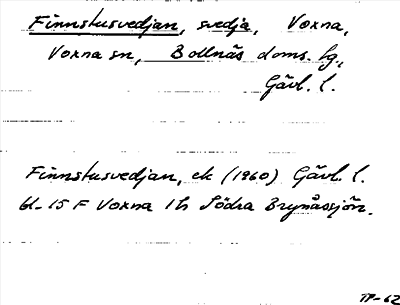 Finnstusvedjan, svedja, Voxna,
Voxna sn, Bollnäs doms. lg,
Gävl. l.
Finnstusvedjan, ek (1960) Gävl. l.
bl. 15 F Voxna 1 h Södra Brynåssjön.
TP-62